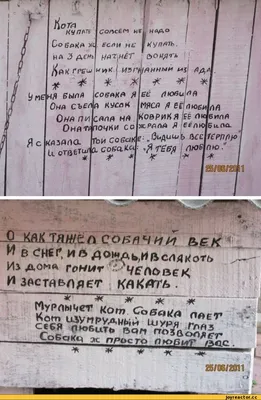 Кота
купать совсем не надо
Собака ж если не купать.
на 3 день начнёт вонять
Как грешник изгнанный из ада
* * * * * *
У меня была собака я её любила
Она съела кусок мяса я её любила
Она писала на коврик я её любила
Она тапочки сожрала я её любила
Я сказала той собаке: "Видишь все терплю"
И ответила собака: "Я тебя люблю."
25/08/2011
О как тяжёл собачий век
И в снег, и в дождь, и в слякоть
Из дома гонит человек
И заставляет какать.
* * * * *
Мурлычет кот. Собака лает
Кот изумрудный щуря глаз
Себя любить вам позволяет
Собака ж просто любит вас.
* * * * *
25/08/2011
joyreactor.cc